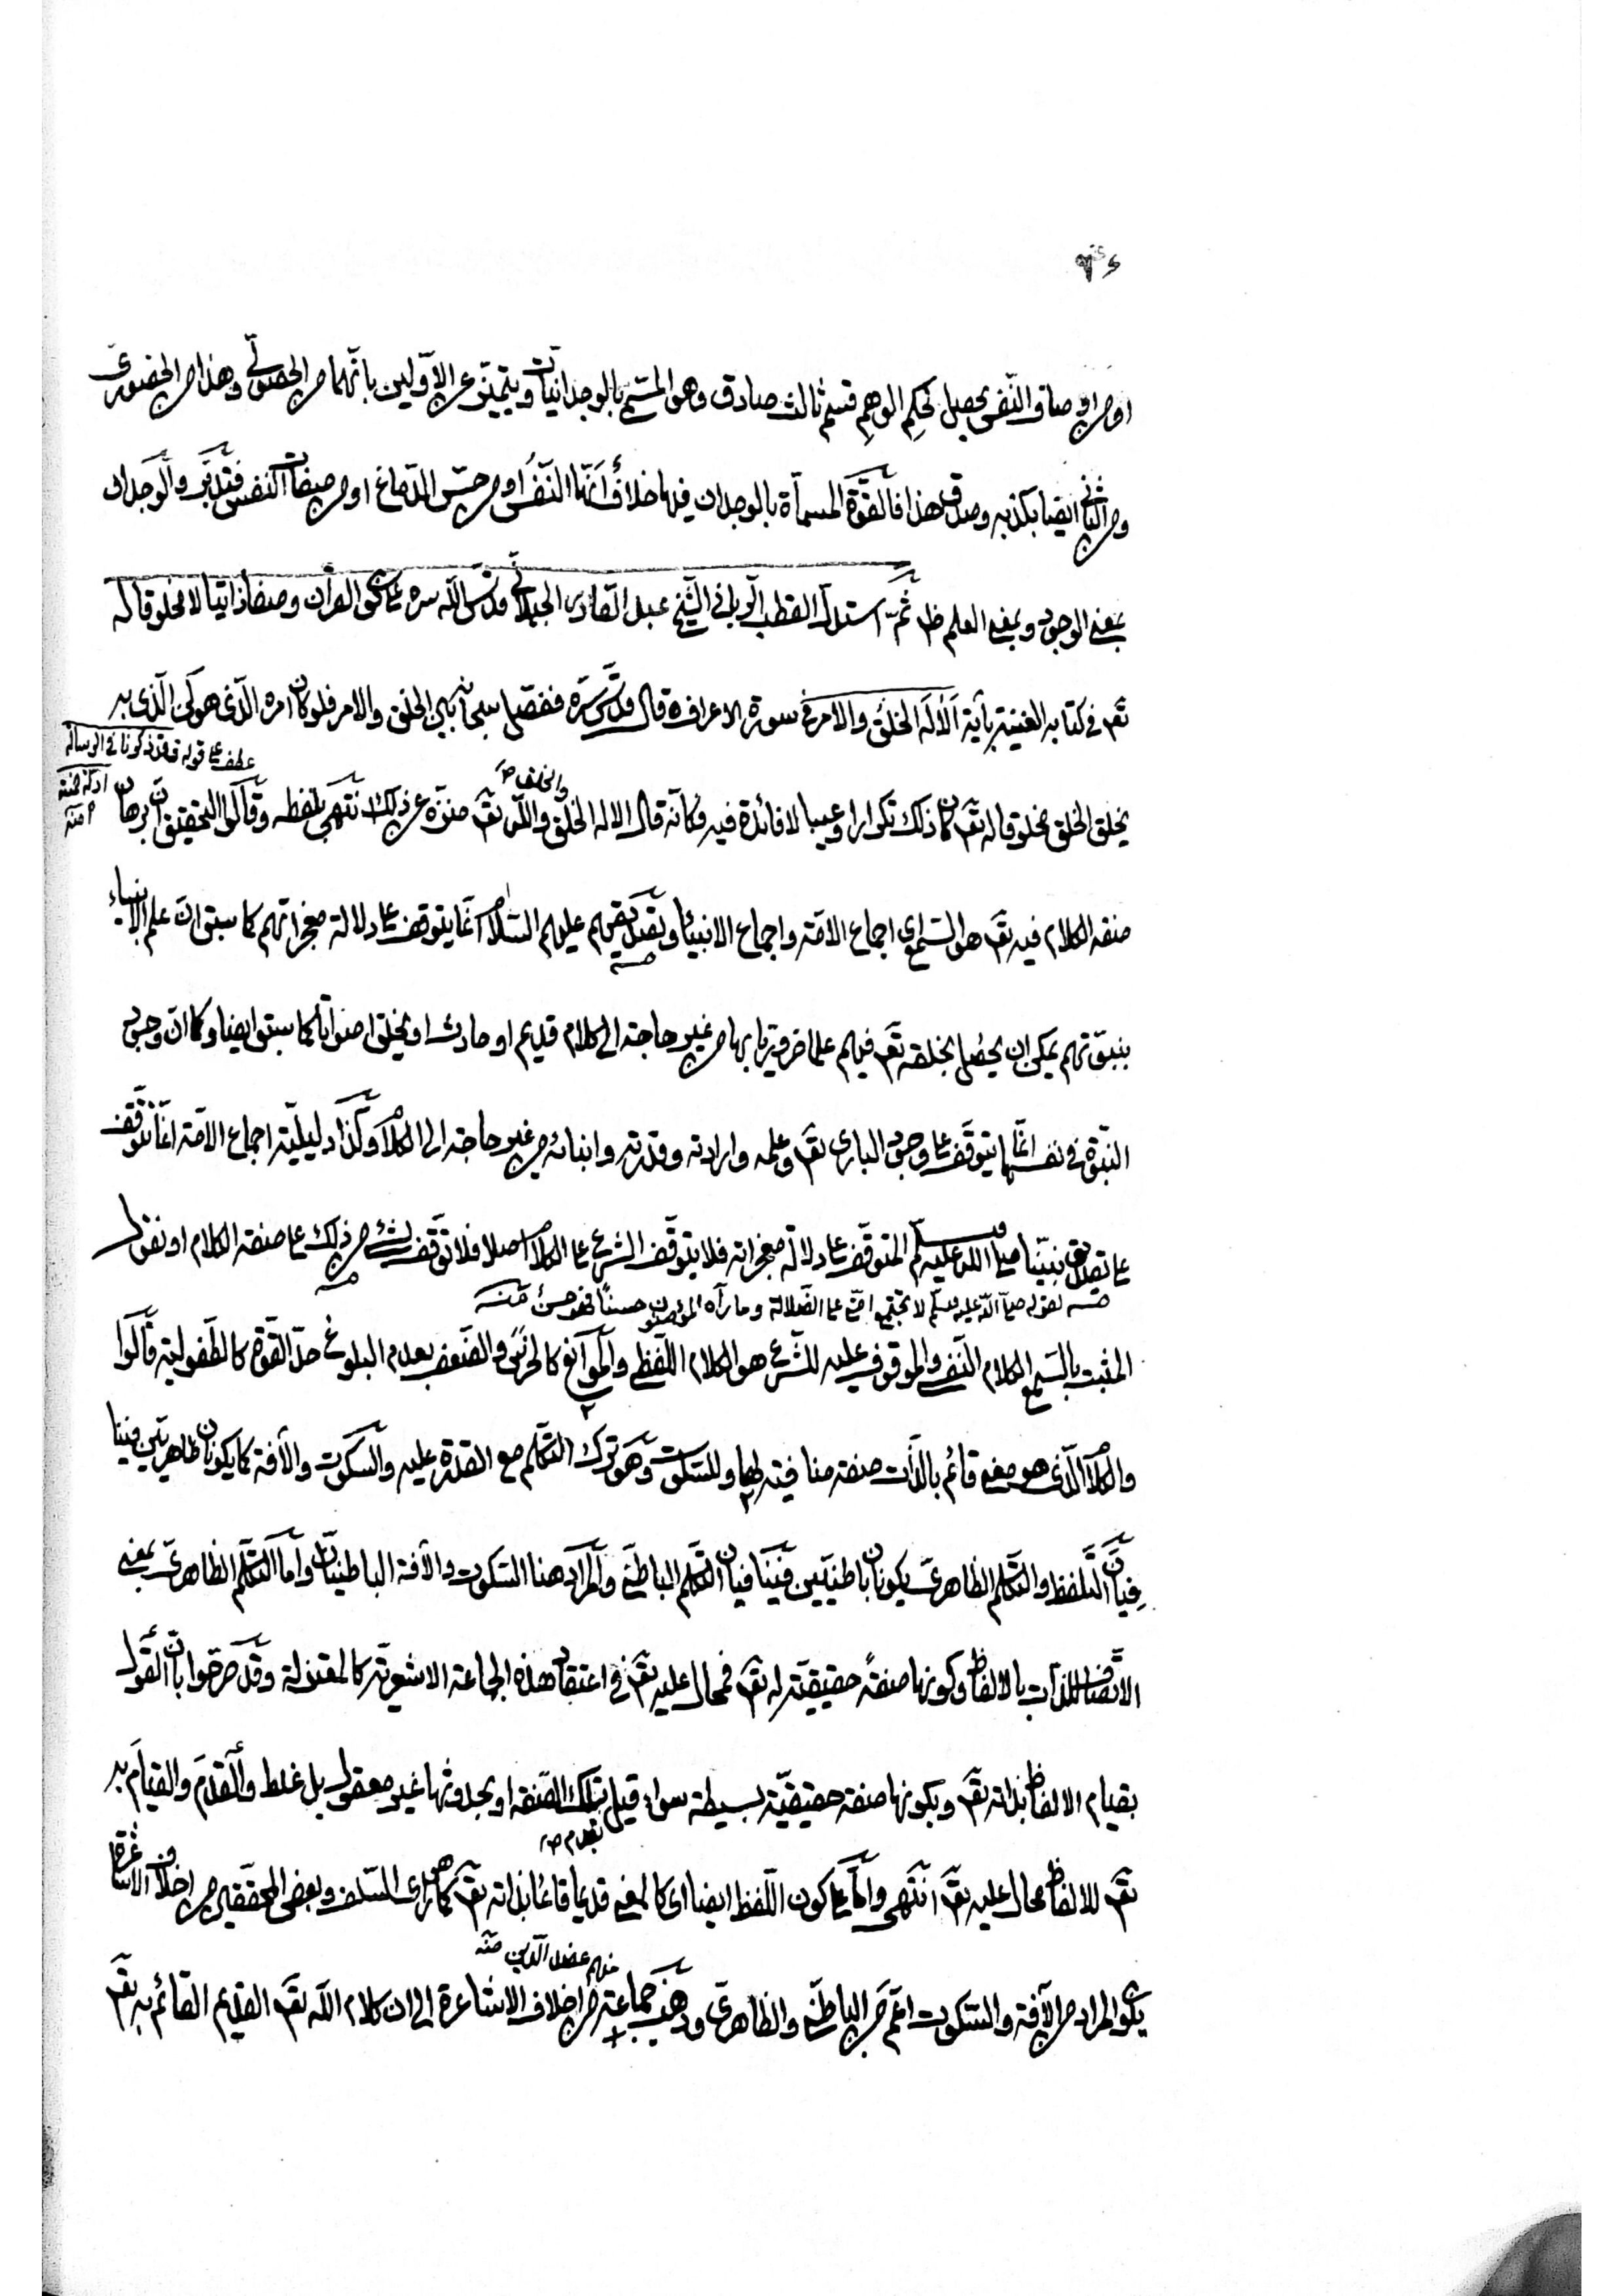 او من اوصاف النّفس يحصل بحكم الوهم قسم ثالث صادق وهو المسمّى بالوجدانيات ويتميّز عن الاوّلين بانّهما من الحصولّي وهذا من الحضورىّ
ومن الثّانى ايضا بكذبه وصدق هذا فالقوّة المسمّاة بالوجدان فيها خلاف أنّها النّفس او من حسّ الدّماغ او من صفات النّفس فتدبّر والوجدان
بمعنى الوجود وبمعنى العلم ظ ثمّ استدلّ القطب الربّانى الشّيخ عبد القادر الجيلانّى قدّس اللّه سره على كون القرأن وصفا ذاتيّا لا مخلوقا له
تعَ فى كتابه الغنية بآية اَلَا لَهُ الخلقُ والامر فى سورة الاعراف قال قدّس سرّه ففصّل سبحانه بين الخلق والامر فلو كان امره الّذى هو كن الّذى به
عطف على قوله قد ذكرنا فى الرساله
يخلق الخلق مخلوقا له تعَ كان ذلك تكرارا وعيبا لا فائدة فيه فكأنّه قال الا له الخلق والخلق صح واللّه تعَ منزّه عن ذلك انتهى بلفظه وقالوا التحقيق انّ برهان
صفه الكلام فيه تعَ هو السّمع اى اجماع الامّة واجماع الانبياء وتصديقهم عليهم السّلام انّما يتوقف على دلالة معجزاتهم كما سبق انّ علم الانبياء
بنبوّتهم يمكن ان يحصل بخلقه تعَ فيهم علما ضروريّا بها من غير حاجة الى كلام قديم او حادث او بخلق اصوات كما سبق ايضا وكما انّ وجود
النّبوّة فى نفسها انّما يتوقّف على وجود البارى تعَ وعلمه وارادته وقدرته وانبائه من غير حاجة الى الكلام وكذا دليليّة اجماع الامّة انّما تتوقّف
على تصديق نبيّنا صلى اللّه عليه وسلّم المتوقّف على دلالة معجزاته فلا يتوقّف الشّرع على الكلام اصلا فلا توقّف لشئ من ذلك على صفة الكلام او نقول
لقوله صلى اللّه عليه وسلّم لا تجتمع امّتى على الضّلالة وما رآه المؤمنون حسنًا فهو حسنٌ منه
المثبت بالسّمع الكلام النّفسى والموقوف عليه للشّرع هو الكلام اللّفظى والموانع كالخرس والضّعف بعدم البلوغ حدّ القوّة كالطّفوليّة قالوا
والكلام الّذى هو معنى قائم بالذّات صفة منافية لها وللسّكوت وهو ترك التّكلّم مع القدرة عليه والسّكوت والآفة كما يكونان ظاهريّين فينا
فينافيان التّلفّظ والتكلّم الظاهرىّ يكونان باطنيّين فينا فينافيان التّكلّم الباطنىّ والمراد هنا السّكوت والآفة الباطنيّان وامّا التكلّم الظاهرىّ بمعنى
الاتّصاف للذّات بالالفاظ وكونها صفةً حقيقيّة له تعَ فمحال عليه تعَ فى اعتقاد هذه الجماعة الاشعريّة كالمعتزلة وقد صرّحوا بانّ القول
بقيام الالفاظ بذاته تعَ وبكونها صفة حقيقيّة بسيطة سواء قيل بقدم صح تلك الصّفة او بحدوثها غير معقول بل غلط والقدم والقيام به
تعَ للالفاظ محال عليه تعَ انتهى وامّا على كون اللّفظ ايضا اى كالمعنى قديما قائما بذاته تعَ كما هو رأى السّلف وبعض المحققين من اخلاف الاشاعرة
منهم عضد الدّين منه
يكون المراد من الآفة والسّكوت اعمّ من الباطنّى والظاهرىّ وذهب جماعة من اخلاف الاشاعرة الى ان كلام اللّه تعَ القديم القائم به تعَ